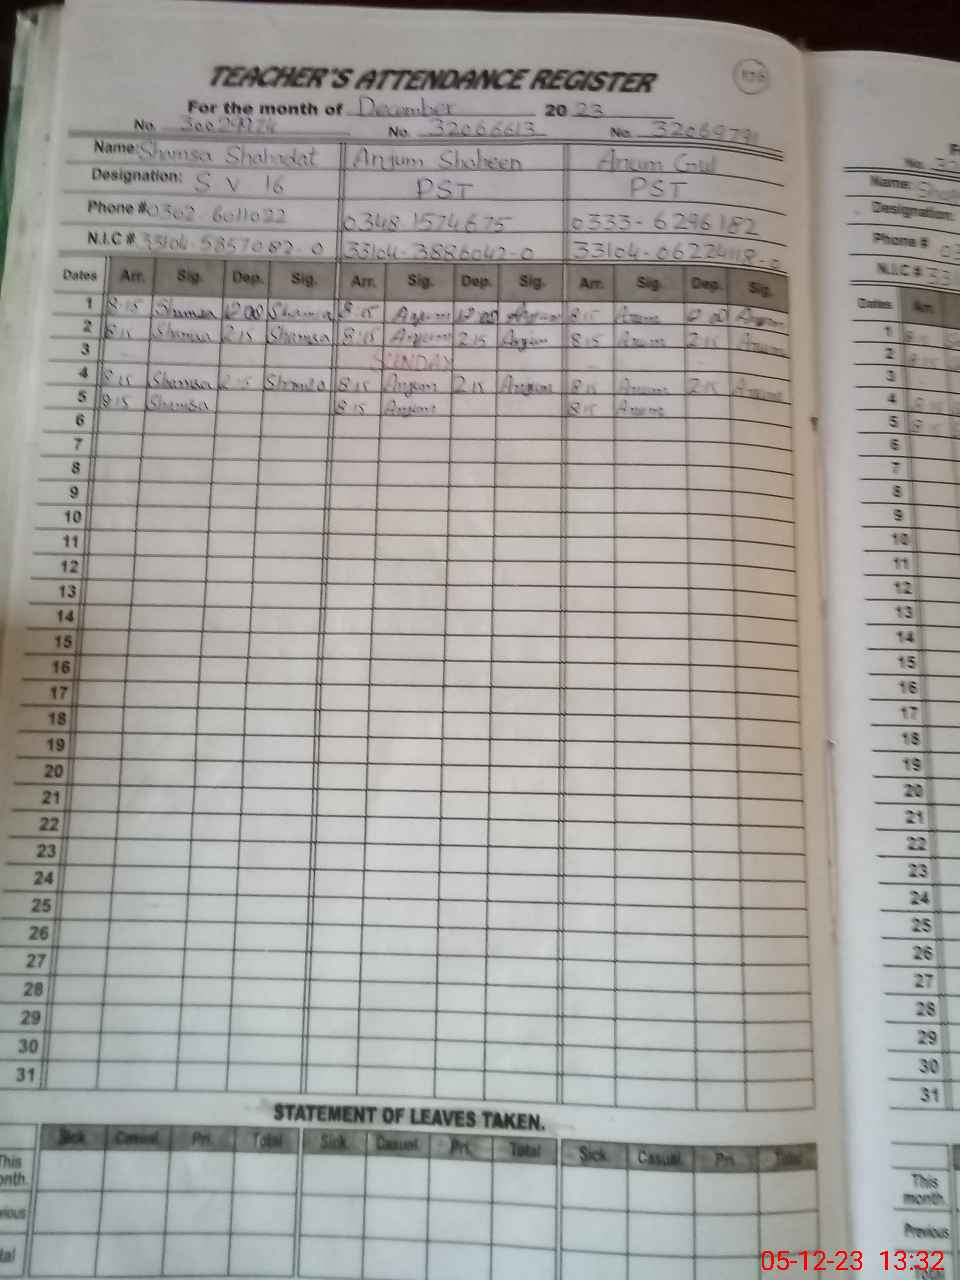 TEACHER'S ATTENDANCE REGISTER
For the month of December 20 23
No. 30029274 No. 32066613 No. 32069791
Name: Shamsa Shahadat Anjum Shaheen Anum Gul
Designation: S V 16 PST PST
Phone # 0302-6011022 0348 1574675 0333-6296182
N.I.C # 33104-5857082-0 33104-3886042-0 33104-
Dates Arr. Sig. Dep. Sig. Arr. Sig. Dep. Sig. Arr. Sig. Dep. Sig.
1 8:15 Shamsa 12 00 Shamsa 8:15 Anjum 12 00 Anjum 8:15 Anum Anum
2 8:15 Shamsa 2:15 Shamsa 8:15 Anjum 2:15 Anjum 8:15 Anum 2:15 Anum
3 SUNDAY
4 8:15 Shamsa 2:15 Shamsa 8:15 Anjum 2:15 Anjum 8:15 Anum 2:15 Anum
5 8:15 Shamsa 8:15 Anjum 8:15 Anum
6
7
8
9
10
11
12
13
14
15
16
17
18
19
20
21
22
23
24
25
26
27
28
29
30
31
STATEMENT OF LEAVES TAKEN.
Sick Casual Pri. Total Sick Casual. Pri. Total Sick Casual Pri. Total
This
month.
No.
Name:
Designation:
Phone #
N.I.C #
Dates Arr.
1
2
3
4
5
6
7
8
9
10
11
12
13
14
15
16
17
18
19
20
21
22
23
24
25
26
27
28
29
30
31
This
month.
Previous
Total
05-12-23 13:32